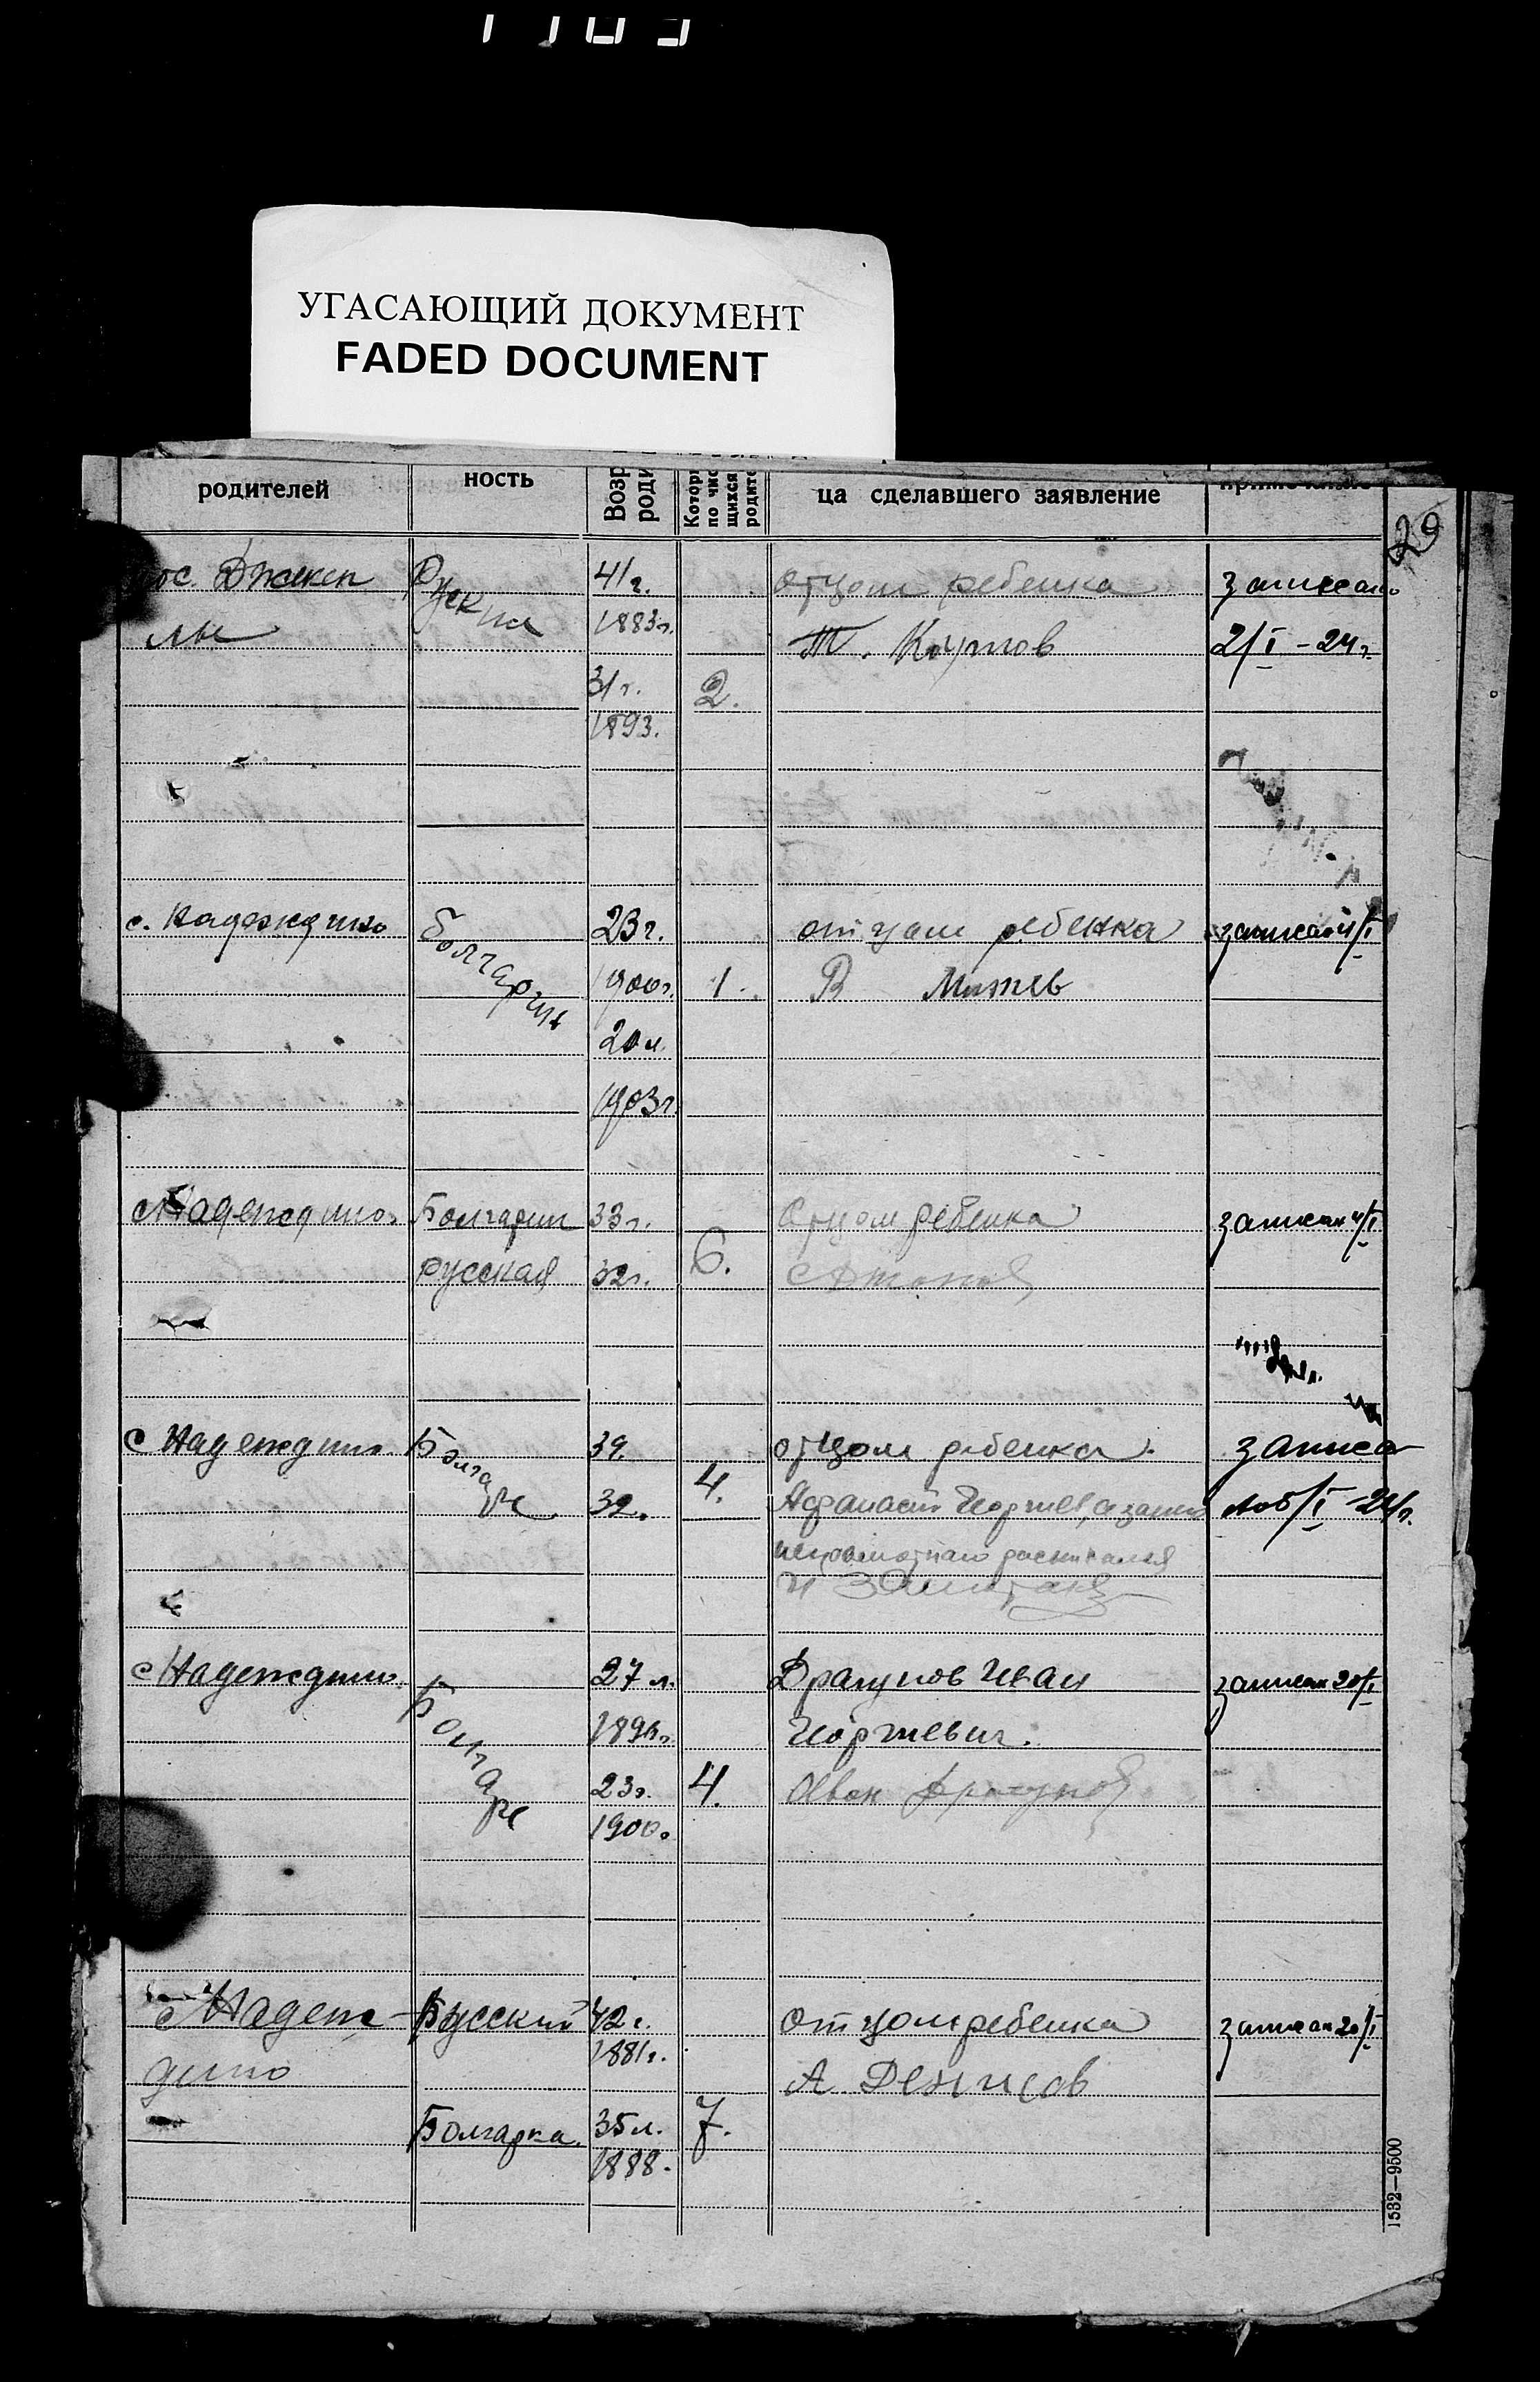 УГАСАЮЩИЙ ДОКУМЕНТ
FADED DOCUMENT
родителей
ность
Возр
роди
Котор
по чис
щихся
родите
ца сделавшего заявление
29
ос. Джекен
лы
Руские
41 г.
1883 г.
31 г.
1893.
2.
отцом ребенка
Т. Коутов
записано
2/I – 24 г.
с. Надеждино
болгарин
23 г.
1900 г.
20 л.
1903 г.
1.
отцом ребенка
В Митев
записан 4/I
с Надеждино
Болгарин
русская
33 г.
32 г.
6.
Отцом ребенка
записан 4/I
с Надеждино
Болгаре
39.
32.
4.
отцом ребенка.
Афанасий Георгиев, а за него
неграмотного расписался
записа
но 5/I – 24 г.
с Надеждино
Болгаре
27 л.
1896 г.
23 г.
1900.
4.
Драгунов Иван
Георгиевич.
Иван Драгунов
записан 20/I
с Надеж-
дино
Русский
Болгарка.
42 г.
1881 г.
35 л.
1888.
7.
отцом ребенка
А Денисов
записан 20/I
1532—9500